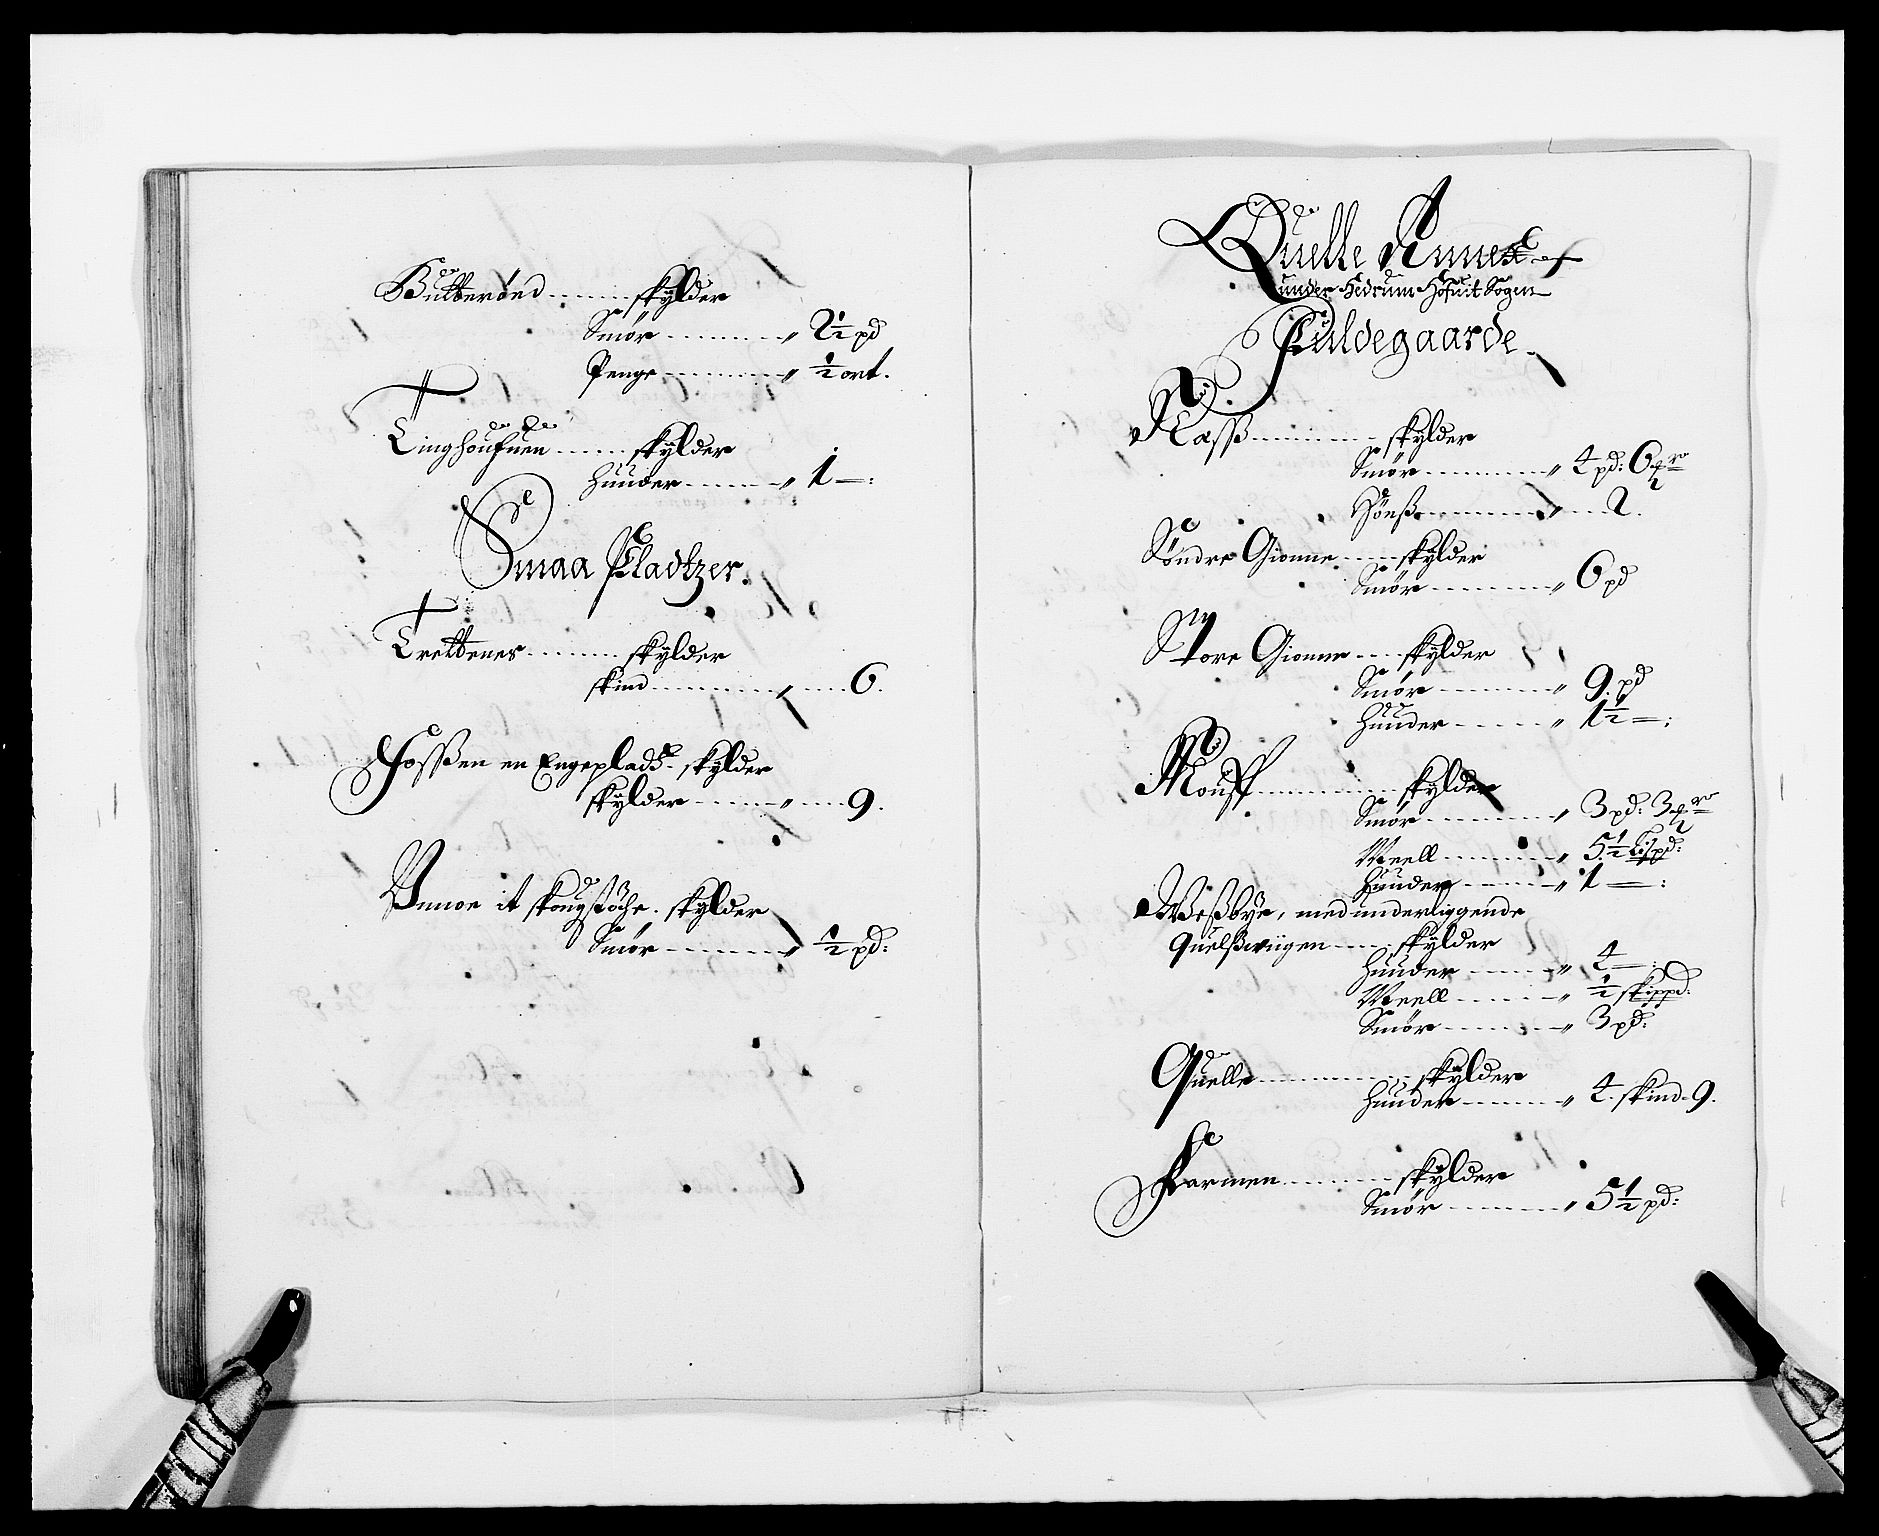 Butterönd ...... skylder
Smör ......... " 2½ pd
Penge ......... " ½ ort.
Tinghoufuen ...... skylder
huuder ......... " 1 —:
Smaa Pladtzer.
Trettenes ......... skylder
skind ......... " ..... 6.
Fossen en Engepladtz. skylder
skylder ......... " ..... 9.
Vnnor it skougstöche. skylder
Smör ......... " ½ pd:
Quelle Annex
under Hedrum Hofuit Sogen
Fuldegaarde.
Aasß ......... skylder
Smör ......... " 4 pd: 6
Hönß ......... " .... 2.
Söndre Gionne ...... skylder
Smör ......... " 6 pd
Store Gionne .... skylder
Smör ......... " 9. pd
huuder ...... " 1½ —:
Mouff ......... skylder
Smör ......... " 3 pd: 3
Meell ......... " 5½ Lispd:
Huuder ...... " 1 —:
Weßbÿe, med underliggende
Quelßwiigen ..... skylder
huuder ...... " 4 —:
Meell ...... " ½ skippd:
Smör ......... " 3 pd:
Quelle ............ skylder
huuder ......... " 4. skind 9.
Farmen ......... skylder
Smör ......... " 5½ pd: